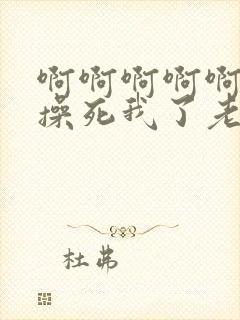 啊啊啊啊啊
操死我了老
杜弗